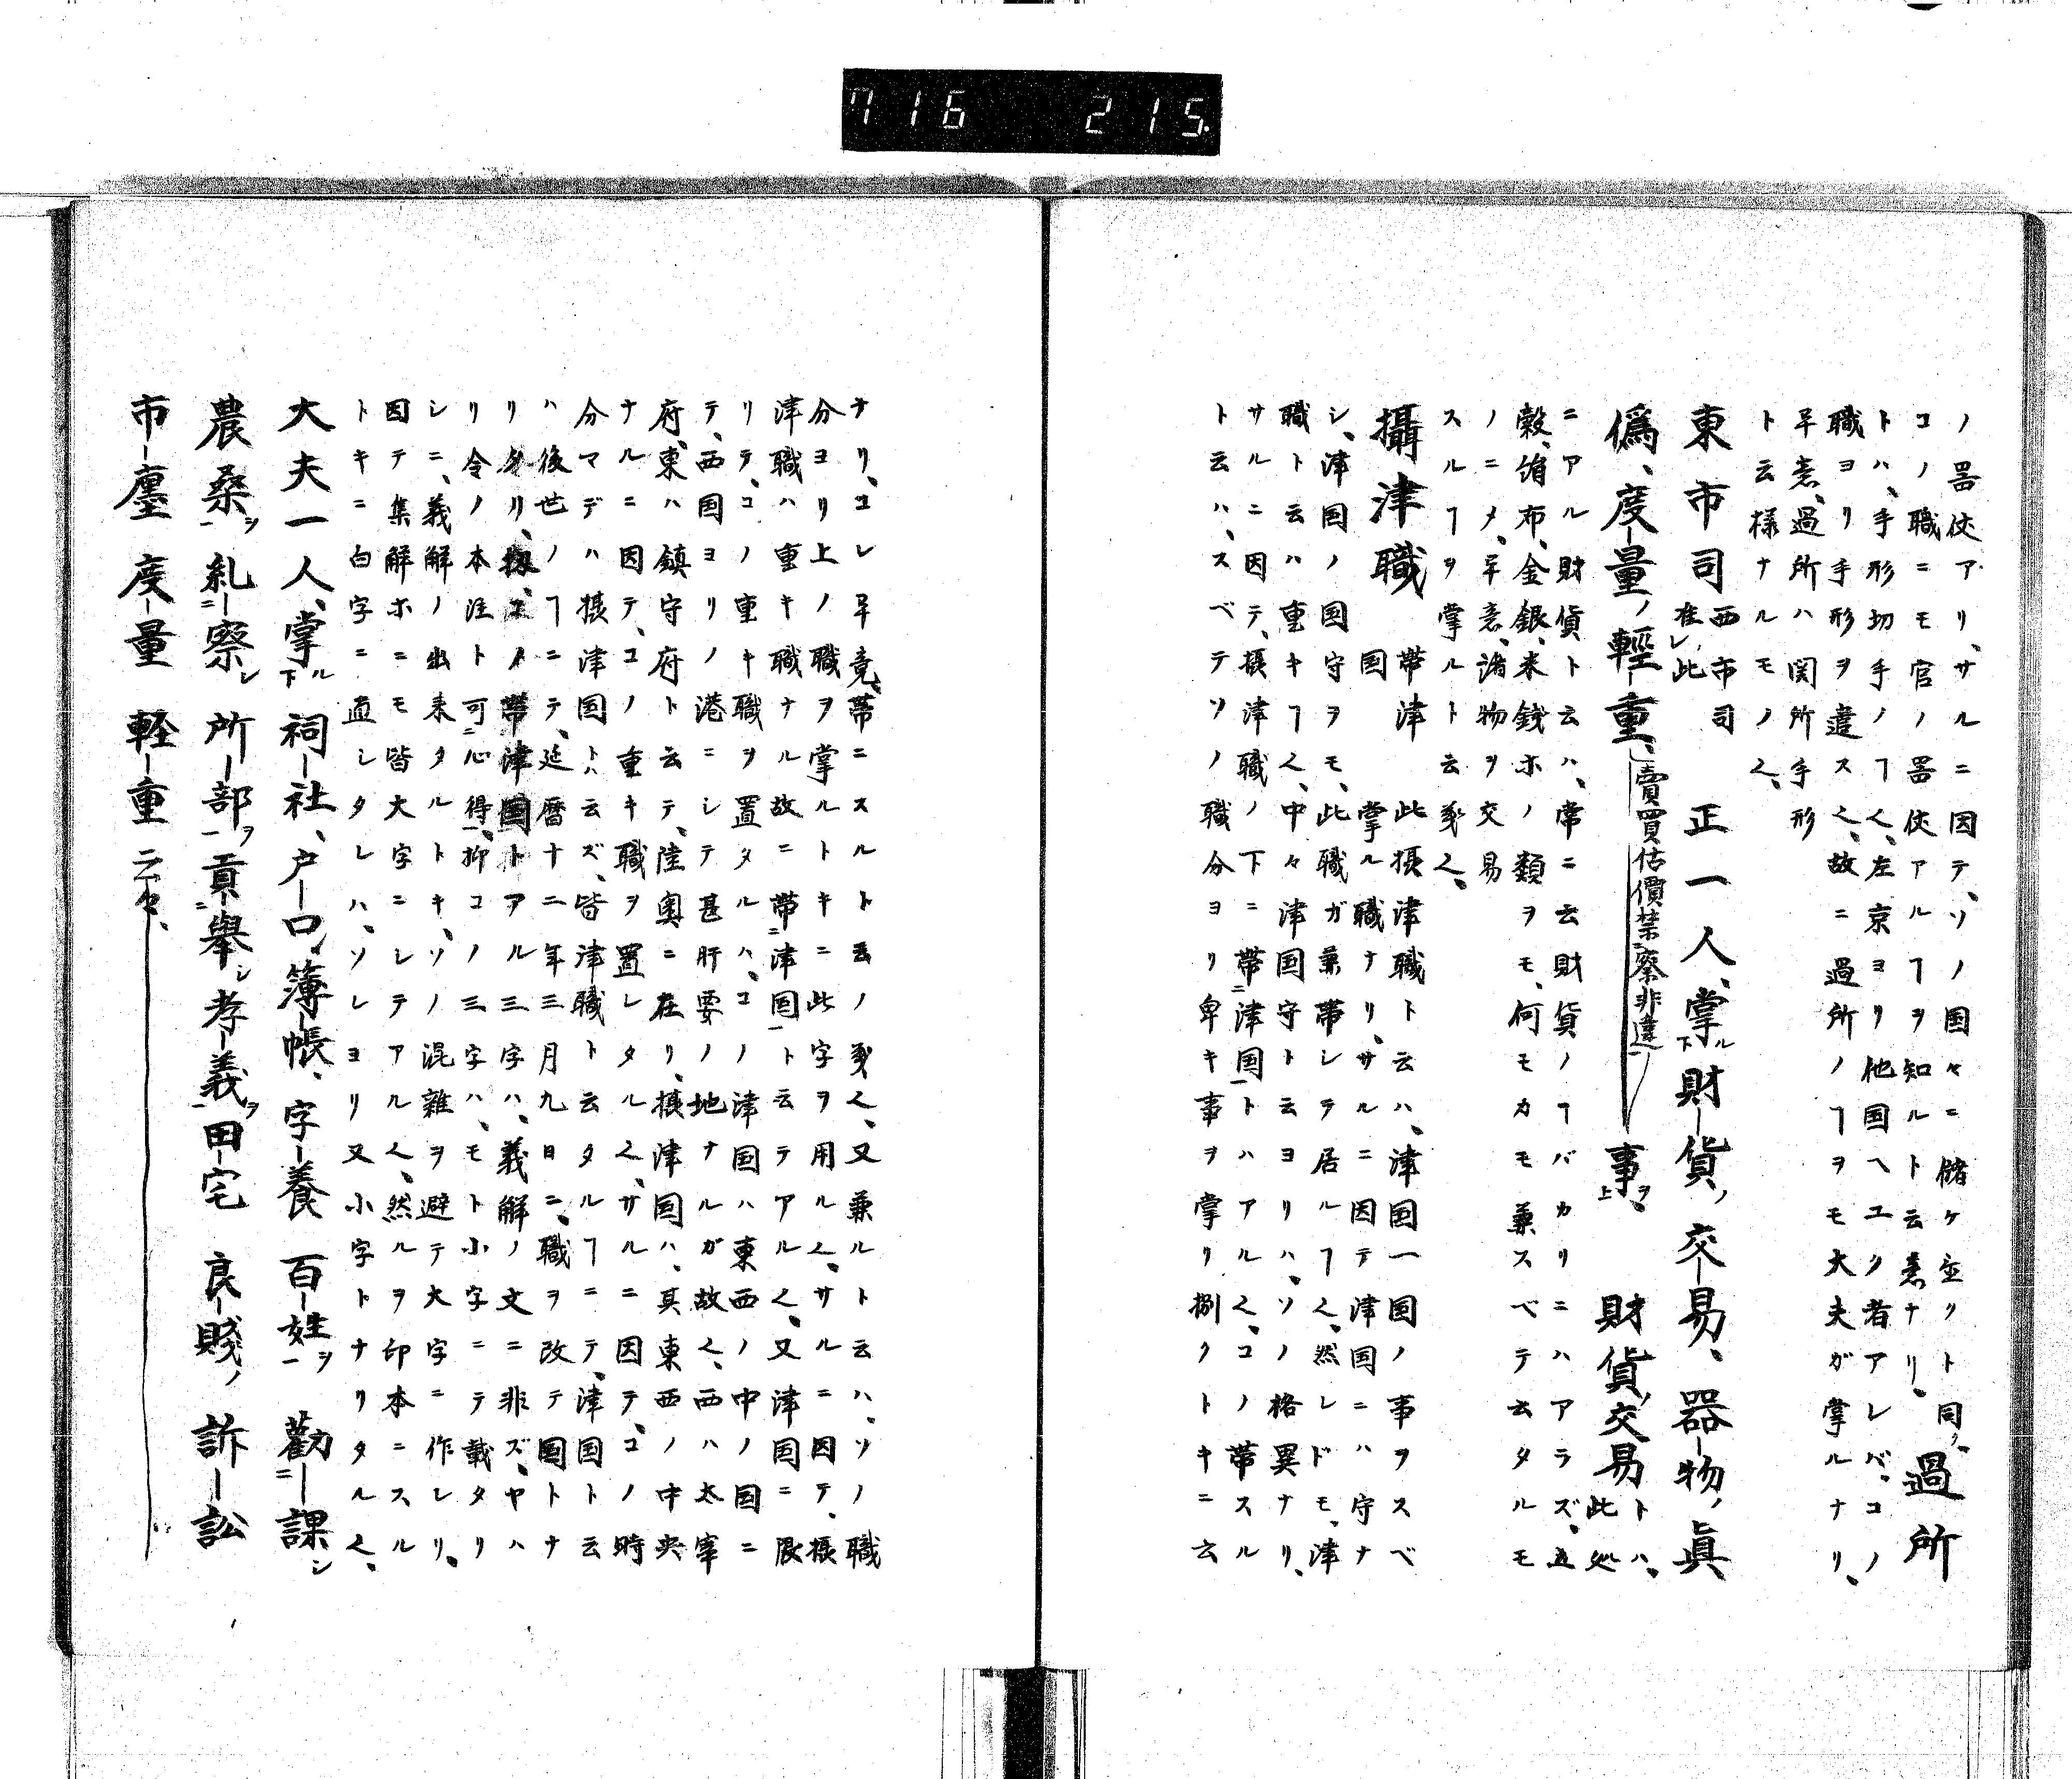 716 215.
ノ噐仗アリ、サルニ因テ、ソノ国々ニ儲ケ立リト同ク、過所
コノ職ニモ官ノ噐仗アルヿヲ知ルト云意ナリ、
トハ、手形切手ノヿ也、左京ヨリ他国ヘユク者アレバ、コノ
職ヨリ手形ヲ遣ス也、故ニ過所ノヿヲモ大夫ガ掌ルナリ、
畢意、過所ハ関所手形
ト云様ナルモノ也、
東市司 西市司准レ此 正一人、掌ル下財貨ノ交易、器物ノ眞
僞、度量ノ輕重、賣買估價禁察非違 事ヲ上、 財貨ノ交易トハ、此処
ニアル財貨ト云ハ、常ニ云財貨ノヿバカリニハアラズ、五
穀、絹布、金銀、米錢ホノ類ヲモ、何モカモ兼スベテ云タルモ
ノニメ、畢意、諸物ヲ交易
スルヿヲ掌ルト云義也、
攝津職 帯津国 此摂津職ト云ハ、津国一国ノ事ヲスベ
掌ル職ナリ、サルニ因テ津国ニハ守ナ
シ、津国ノ国守ヲモ、此職ガ兼帯シテ居ルヿ也、然レドモ、津
職ト云ハ重キヿ也、中々津国守ト云ヨリハ、ソノ格異ナリ、
サルニ因テ、摂津職ノ下ニ帯二津国一トハアル也、コノ帯スル
ト云ハ、スベテソノ職分ヨリ卑キ事ヲ掌リ捌クトキニ云
ナリ、コレ畢竟、帯ニスルト云ノ義也、又兼ルト云ハ、ソノ職
分ヨリ上ノ職ヲ掌ルトキニ此字ヲ用ル也、サルニ因テ、摂
津職ハ重キ職ナル故ニ帯二津国一ト云テアル也、又津国ニ限
リテ、コノ重キ職ヲ置タルハ、コノ津国ハ東西ノ中ノ国ニ
テ、西国ヨリノ港ニシテ甚肝要ノ地ナルガ故也、西ハ太宰
府、東ハ鎮守府ト云テ、陸奥ニ在リ、摂津国ハ、其東西ノ中央
ナルニ因テ、コノ重キ職ヲ置レタル也、サルニ因テ、コノ時
分マデハ摂津国トハ云ズ、皆津職ト云タルヿニテ、津国ト云
ハ後世ノヿニテ、延暦十二年三月九日ニ、職ヲ改テ国トナ
リタリ、帯津国トアル三字ハ、義解ノ文ニ非ズ、ヤハ
リ令ノ本注ト可二心得一、抑コノ三字ハ、モト小字ニテ載タリ
シニ、義解ノ出来タルトキ、ソノ混雑ヲ避テ大字ニ作レリ、
因テ集解ホニモ皆大字ニシテアル也、然ルヲ印本ニスル
トキニ白字ニ直シタレハ、ソレヨリ又小字トナリタル也、
大夫一人、掌ル下祠社、户口、簿帳、字養 百姓ヲ一 勸二課シ
農桑ヲ一 糺二察シ所部ヲ一貢二舉シ孝義ヲ一田宅 良賤ノ 訴訟
市廛 度量 軽重云々、